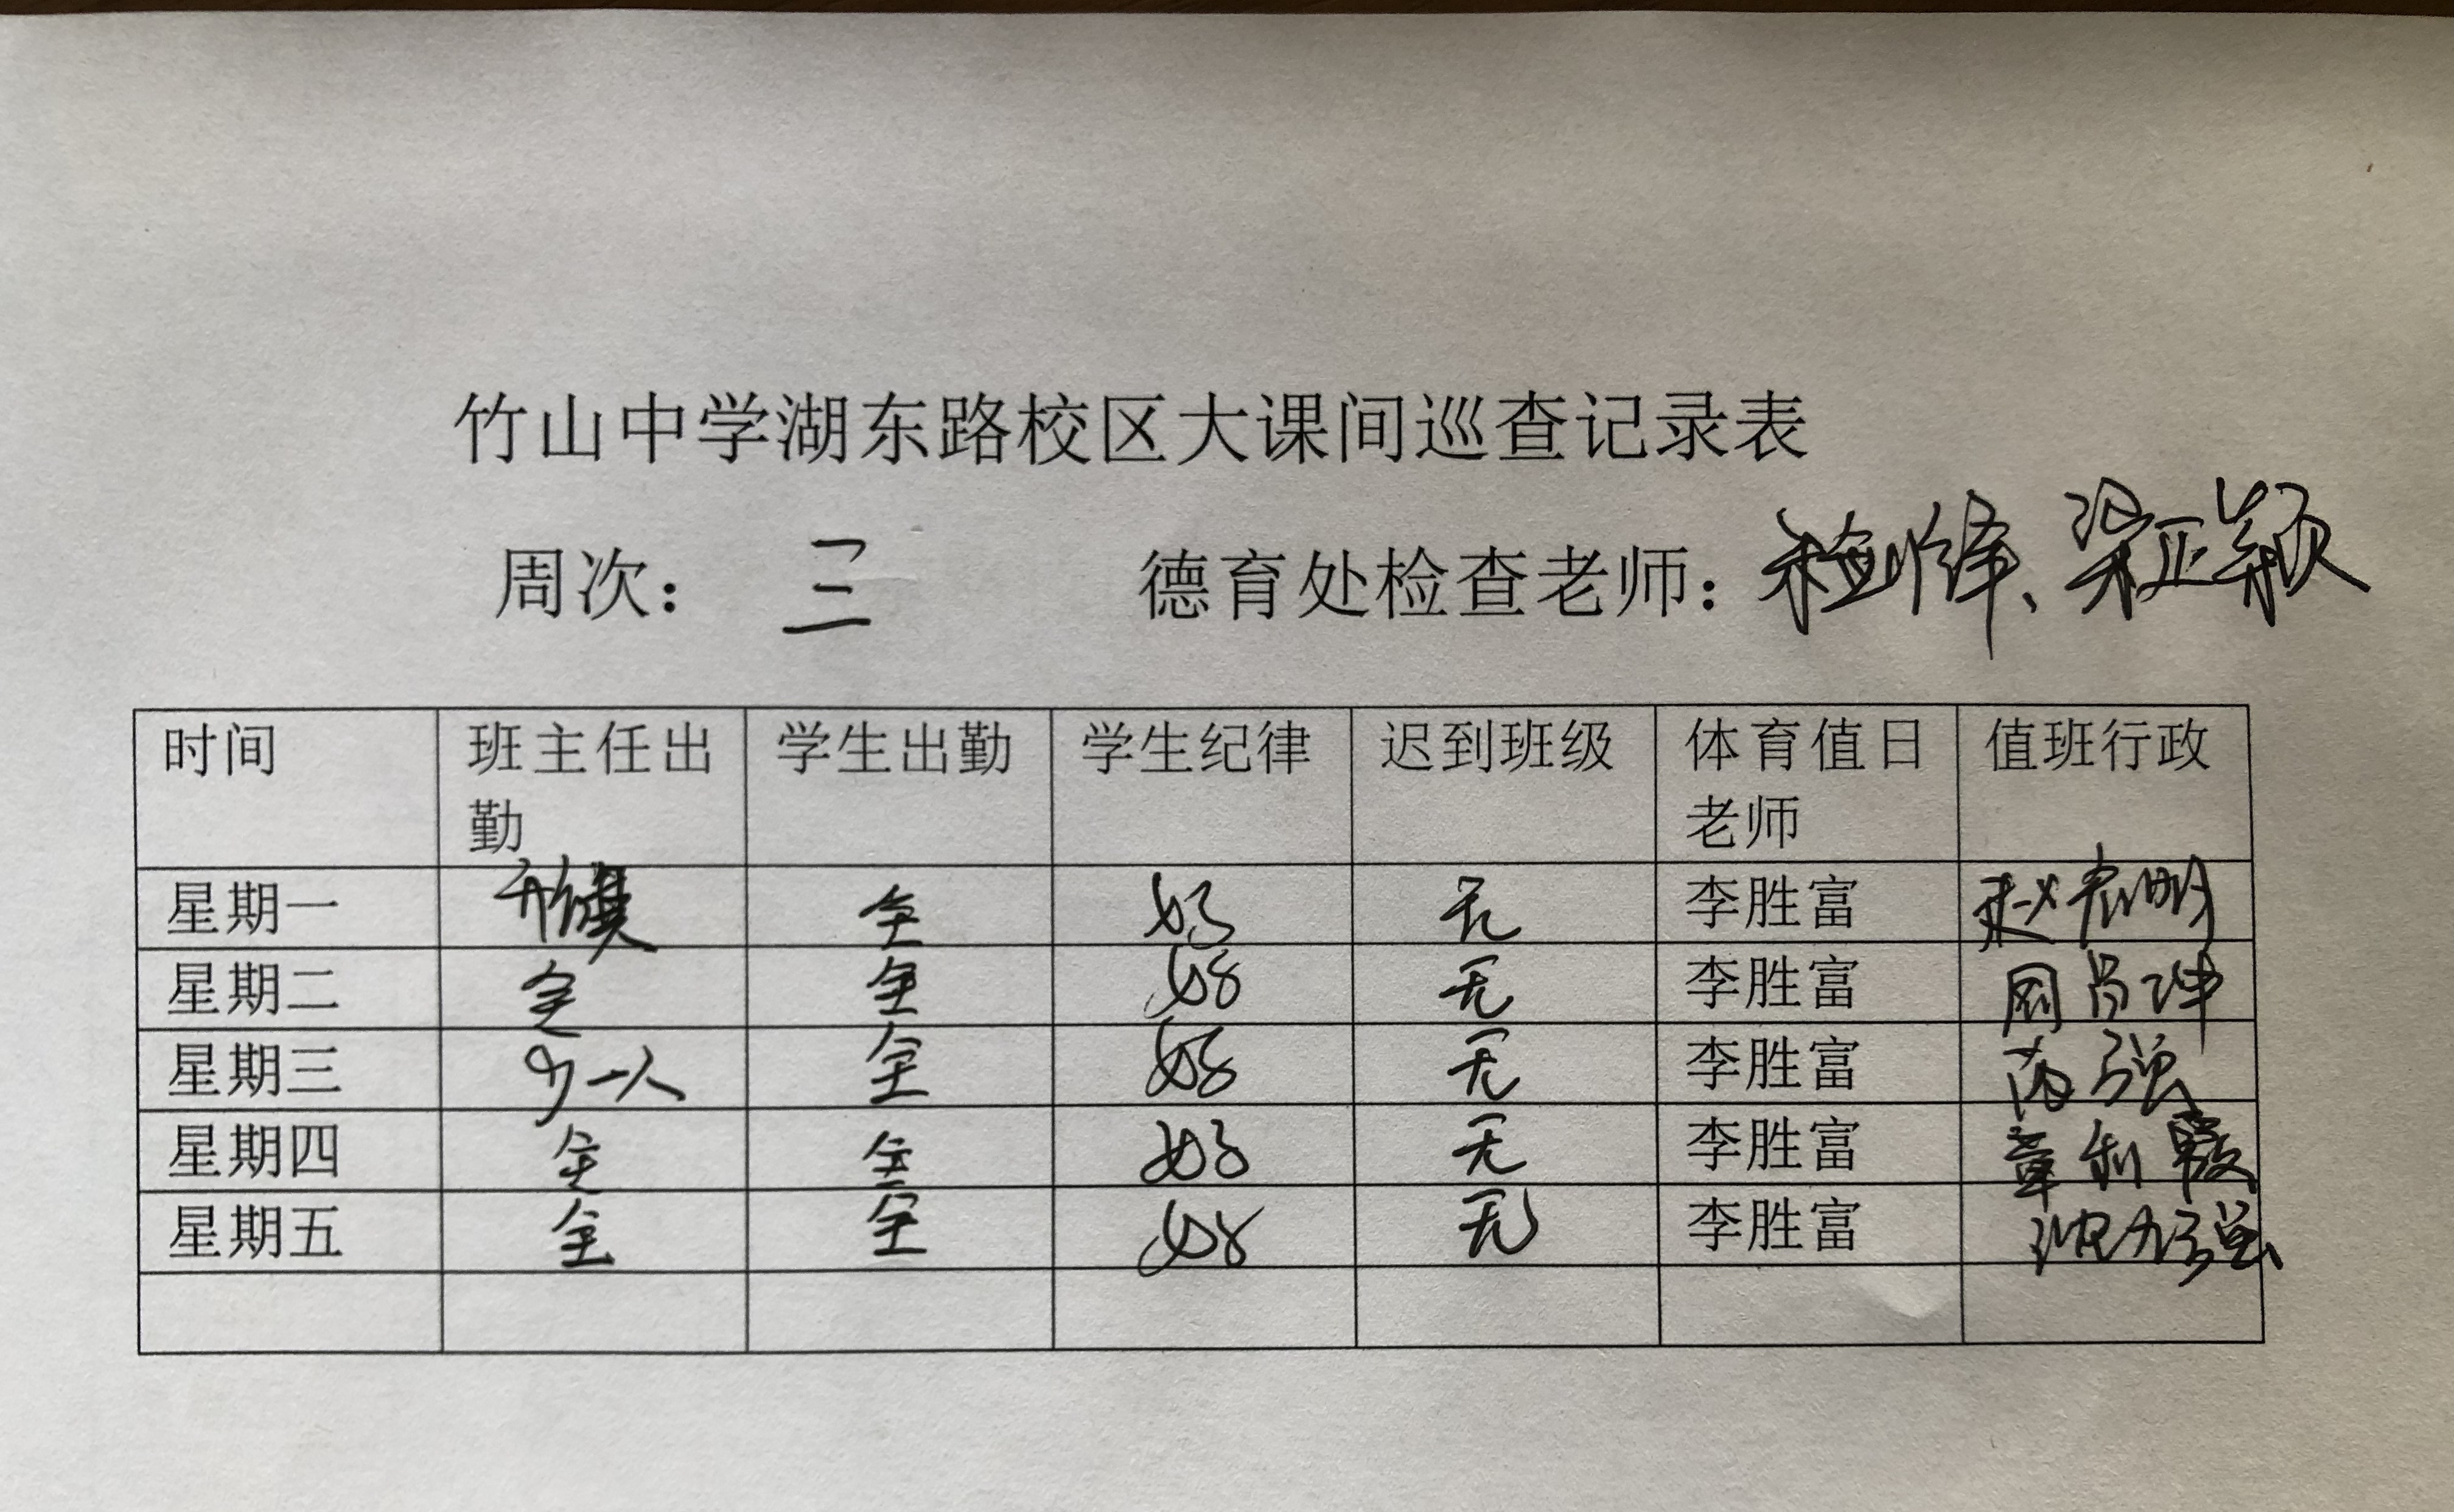 竹山中学湖东路校区大课间巡查记录表
周次： 三 德育处检查老师： 、梁正颖
时间 班主任出勤 学生出勤 学生纪律 迟到班级 体育值日老师 值班行政
星期一 升旗 全 好 无 李胜富
星期二 全 全 好 无 李胜富
星期三 少一人 全 好 无 李胜富 芮强
星期四 全 全 好 无 李胜富 章利霞
星期五 全 全 好 无 李胜富